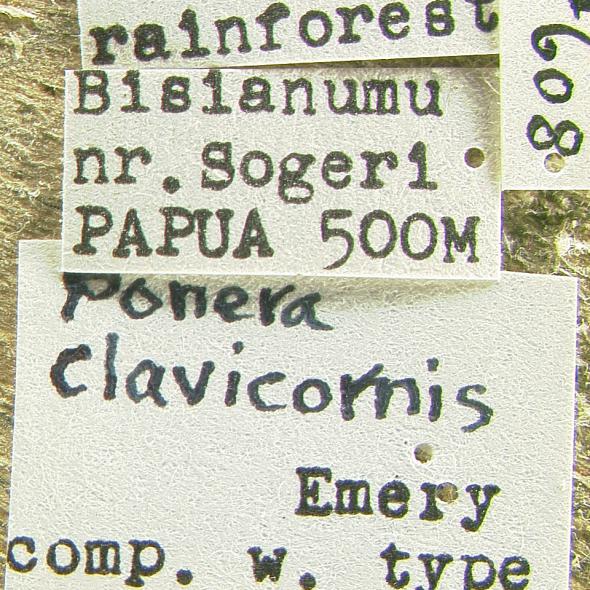 rainforest
Bisianumu
nr. Sogeri
PAPUA 500M
Ponera
clavicornis
Emery
comp. w. type